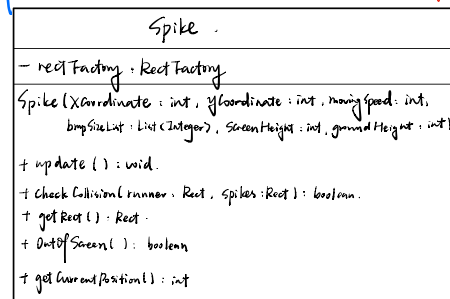 Spike.
- rectFactory : RectFactory
Spike (XCoordinate : int, yCoordinate : int, movingSpeed : int,
bmpSizeList : List<Integer>, ScreenHeight : int, groundHeight : int)
+ update () : void.
+ checkCollision( runner : Rect, spikes : Rect ) : boolean.
+ getRect() : Rect.
+ OutOfScreen( ) : boolean
+ getCurrentPosition() : int